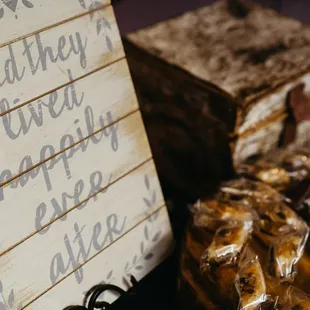 d they
lived
happily
ever
after